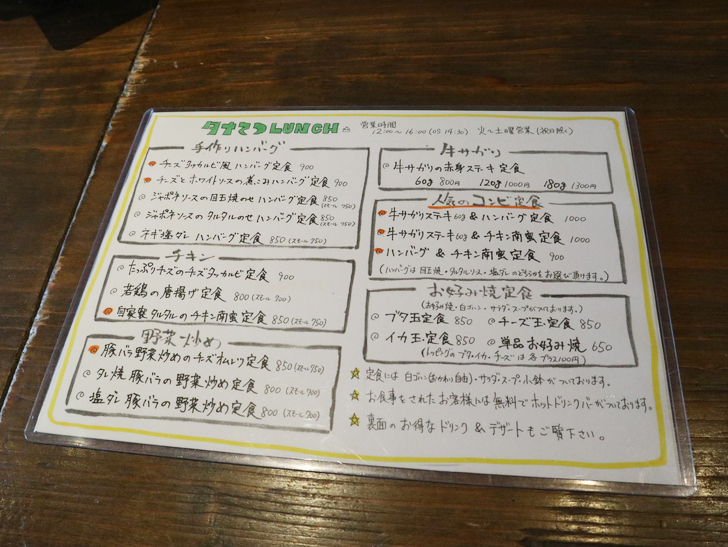 タナてつLUNCH
営業時間
12:00〜16:00(OS 14:30) 火〜土曜営業(祝日除く)
手作りハンバーグ
チーズタッカルビ風 ハンバーグ定食 900
チーズとホワイトソースの煮こみハンバーグ定食 900
ジャポネソースの目玉焼のせハンバーグ定食 850 (スモール 750)
ジャポネソースのタルタルのせハンバーグ定食 850 (スモール 750)
ネギ塩ダレ ハンバーグ定食 850 (スモール 750)
チキン
たっぷりチーズのチーズタッカルビ定食 900
若鶏の唐揚げ定食 800 (スモール 700)
自家製タルタルのチキン南蛮定食 850 (スモール 750)
野菜炒め
豚バラ野菜炒めのチーズオムレツ定食 850 (スモール 750)
タレ焼 豚バラの野菜炒め定食 800 (スモール 700)
塩ダレ 豚バラの野菜炒め定食 800 (スモール 700)
牛サガリ
牛サガリの赤身ステーキ定食
60g 800円 120g 1000円 180g 1300円
人気のコンビ定食
牛サガリステーキ60g & ハンバーグ定食 1000
牛サガリステーキ60g & チキン南蛮定食 1000
ハンバーグ & チキン南蛮定食 900
(ハンバーグは目玉焼・タルタルソース・塩ダレのどちらかをお選び頂けます。)
お好み焼定食
(お好み焼・白ゴハン・サラダ・スープがついております。)
ブタ玉定食 850 チーズ玉定食 850
イカ玉定食 850 単品お好み焼 650
(トッピングのブタ・イカ・チーズは各プラス100円)
定食には 白ゴハン(おかわり自由)・サラダ・スープ・小鉢がついております。
お食事をされたお客様には無料でホットドリンクバーがついております。
裏面のお得なドリンク & デザートもご覧下さい。